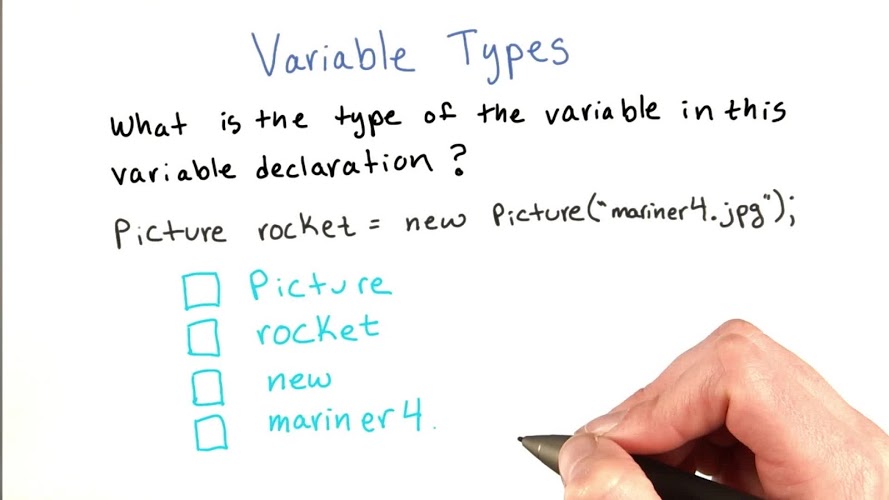 Variable Types
What is the type of the variable in this
variable declaration?
Picture rocket = new Picture("mariner4.jpg");
Picture
rocket
new
mariner4.